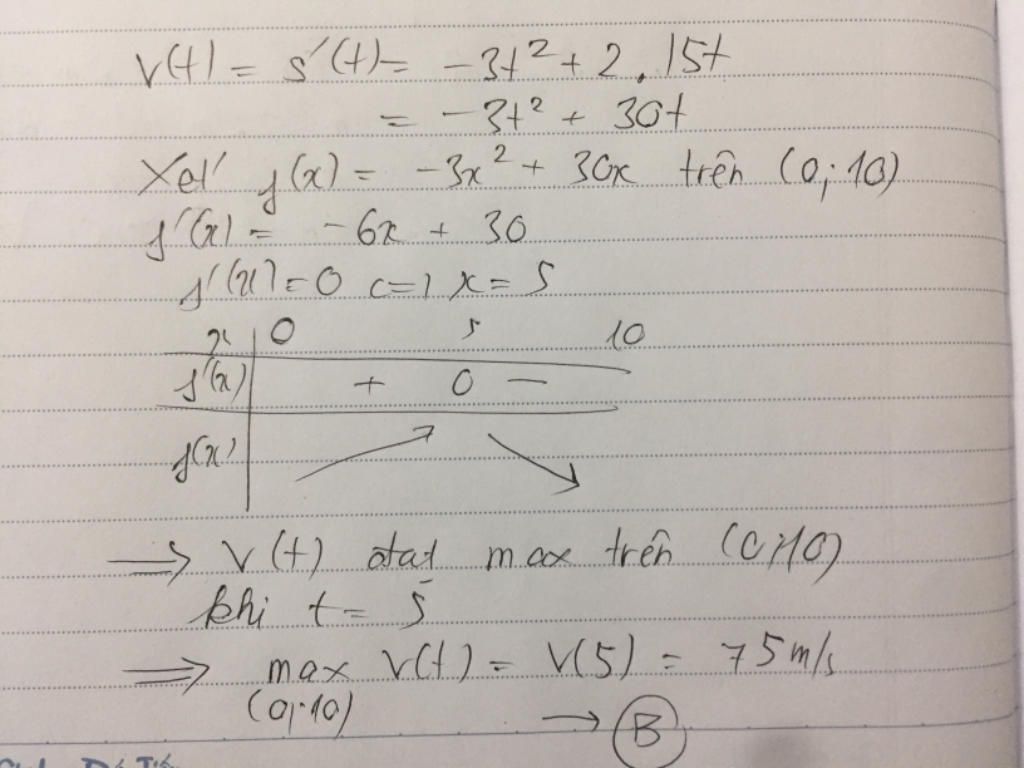 v(t) = s'(t) = -3t² + 2.15t
= -3t² + 30t
Xét f(x) = -3x² + 30x trên (0; 10)
f'(x) = -6x + 30
f'(x) = 0 <=> x = 5
x 0 5 10
f'(x) + 0 -
f(x)
=> v(t) đạt max trên (0; 10)
khi t = 5
=> max v(t) = v(5) = 75 m/s
(0; 10)
→ B